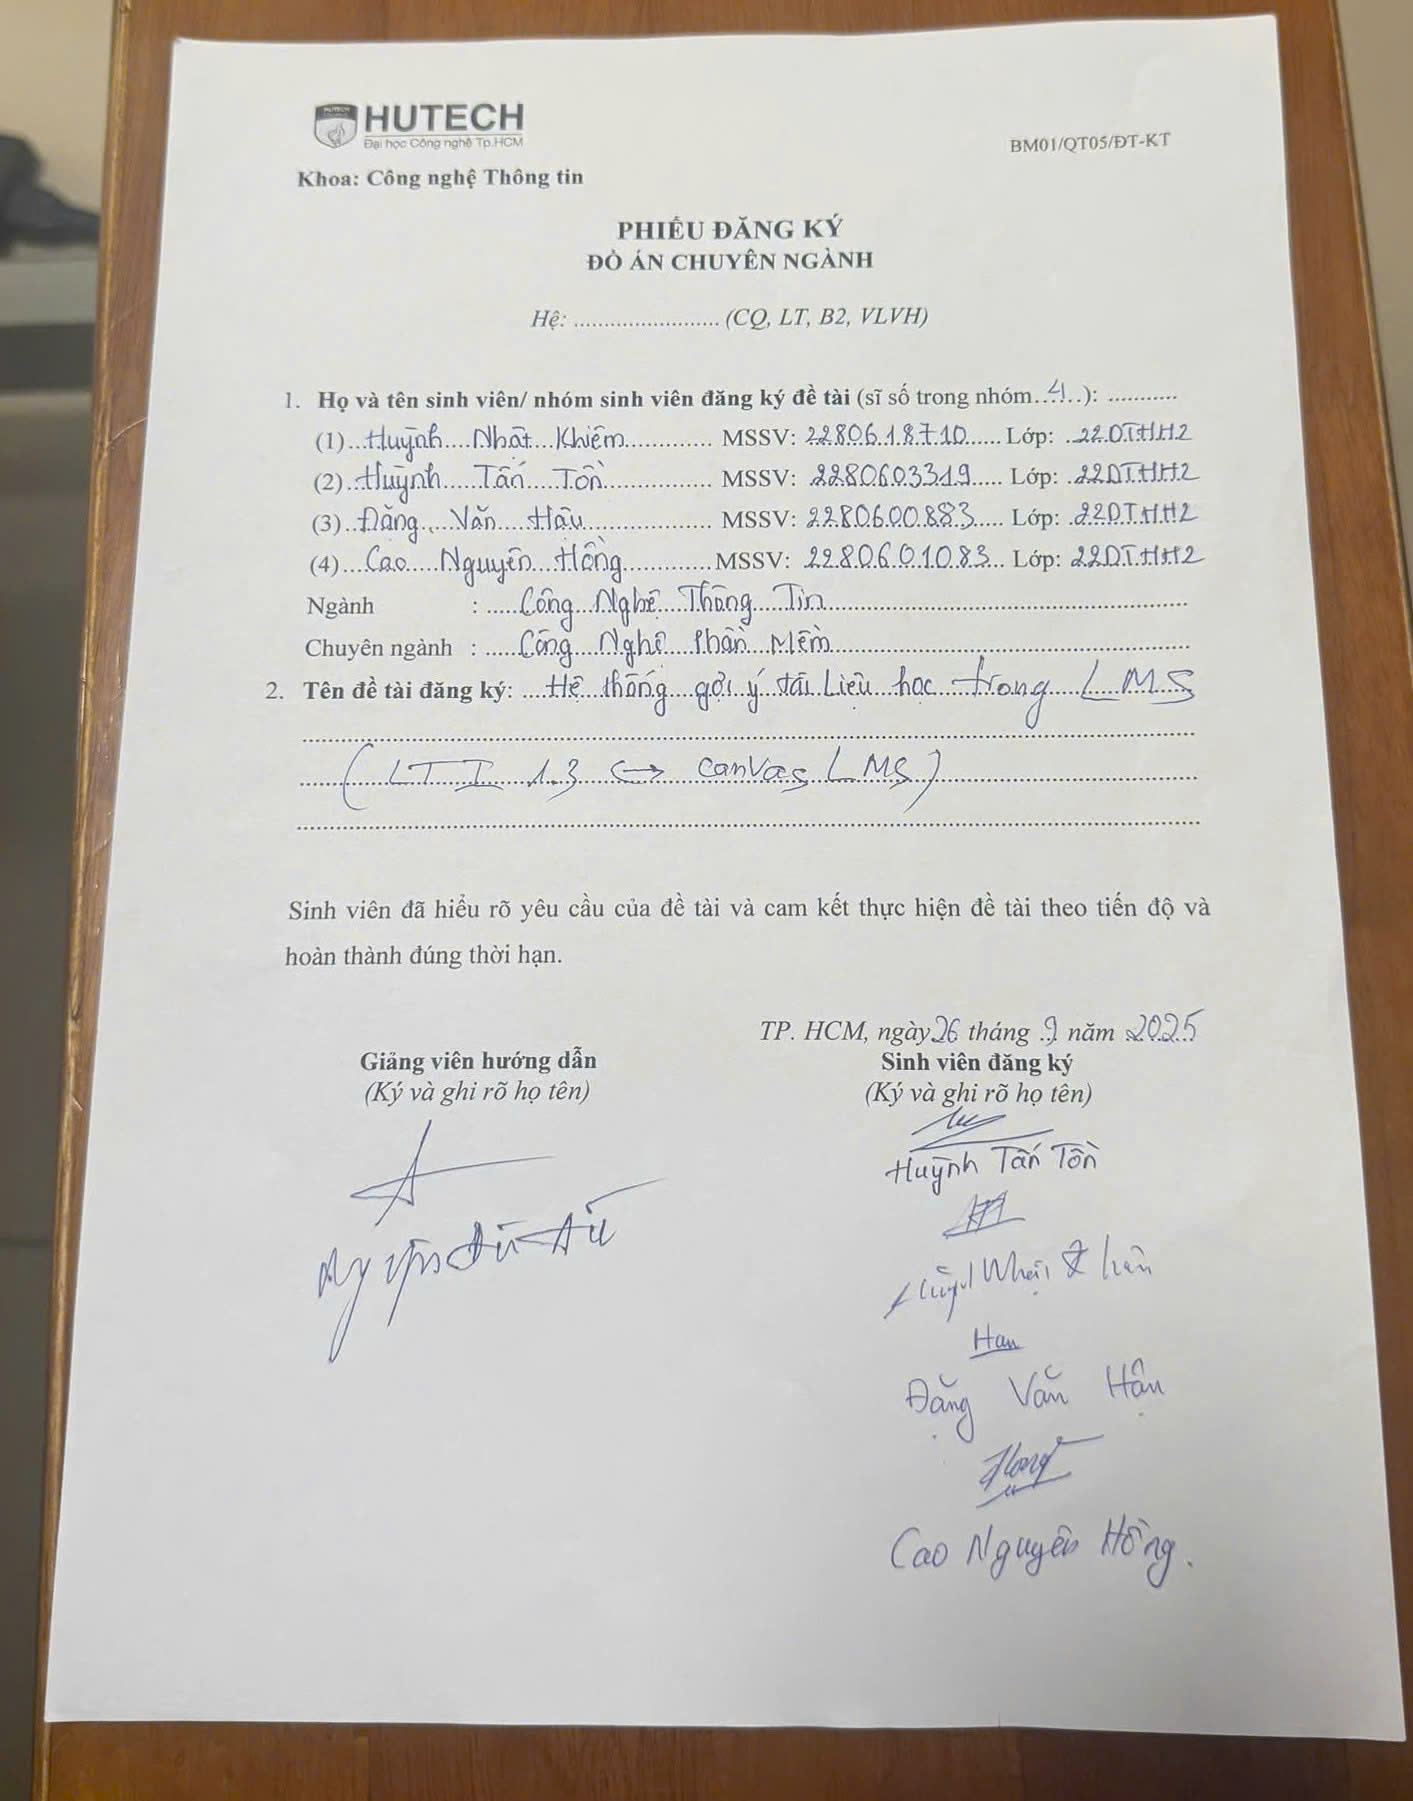 HUTECH
Đại học Công nghệ Tp.HCM
BM01/QT05/ĐT-KT
Khoa: Công nghệ Thông tin
PHIẾU ĐĂNG KÝ
ĐỒ ÁN CHUYÊN NGÀNH
Hệ: ........................ (CQ, LT, B2, VLVH)
1. Họ và tên sinh viên/ nhóm sinh viên đăng ký đề tài (sĩ số trong nhóm..4..): ............
(1)..Huỳnh Nhật Khiêm.............. MSSV: 2280618710...... Lớp: .22DTHH2
(2)..Huỳnh Tấn Tồn.............. MSSV: 2280603319..... Lớp: .22DTHH2
(3)..Đặng Văn Hậu.............. MSSV: 2280600883..... Lớp: .22DTHH2
(4)...Cao Nguyên Hồng.............. MSSV: 2280601083... Lớp: 22DTHH2
Ngành : .....Công Nghệ Thông Tin..............
Chuyên ngành : .....Công Nghệ Phần Mềm..............
2. Tên đề tài đăng ký: ...Hệ thống gợi ý tài liệu học trong LMS
(LTI 1.3 ↔ canvas LMS)
Sinh viên đã hiểu rõ yêu cầu của đề tài và cam kết thực hiện đề tài theo tiến độ và
hoàn thành đúng thời hạn.
TP. HCM, ngày 26 tháng 9 năm 2025
Giảng viên hướng dẫn
Sinh viên đăng ký
(Ký và ghi rõ họ tên)
(Ký và ghi rõ họ tên)
Huỳnh Tấn Tồn
Huỳnh Nhật Khiêm
Hau
Đặng Văn Hậu
Hong
Cao Nguyên Hồng.